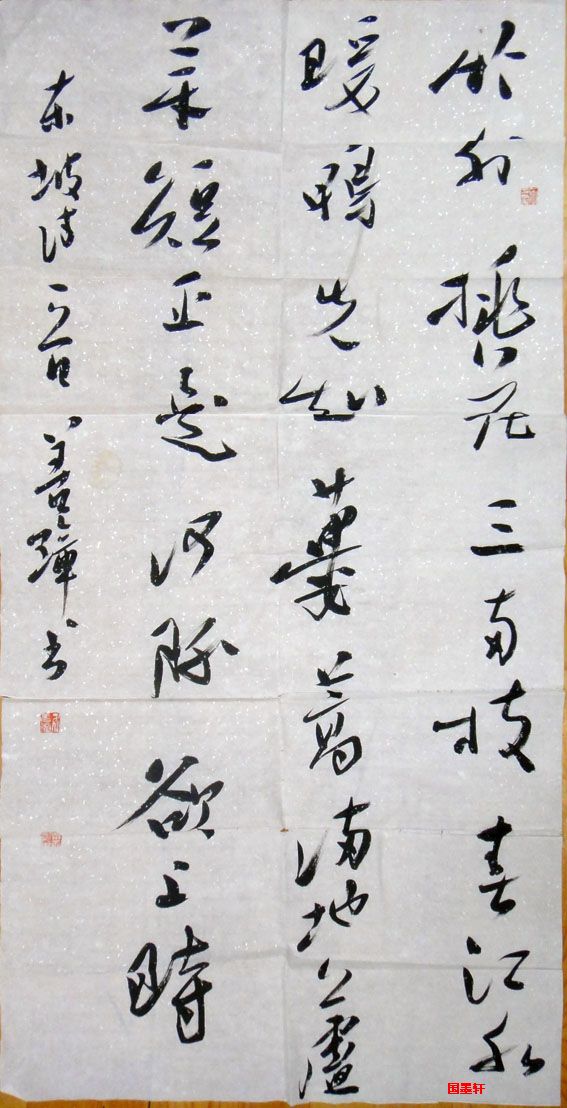 竹外桃花三两枝春江水
暖鸭先知蒌蒿满地蘆
芽短正是河豚欲上時
东坡诗一首 善书
国墨轩